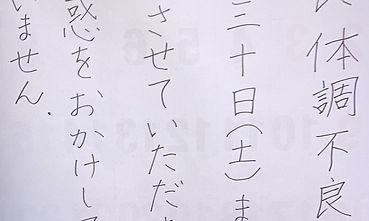 体調不良
三十日(土)ま
させていただ
惑をおかけして
いません.